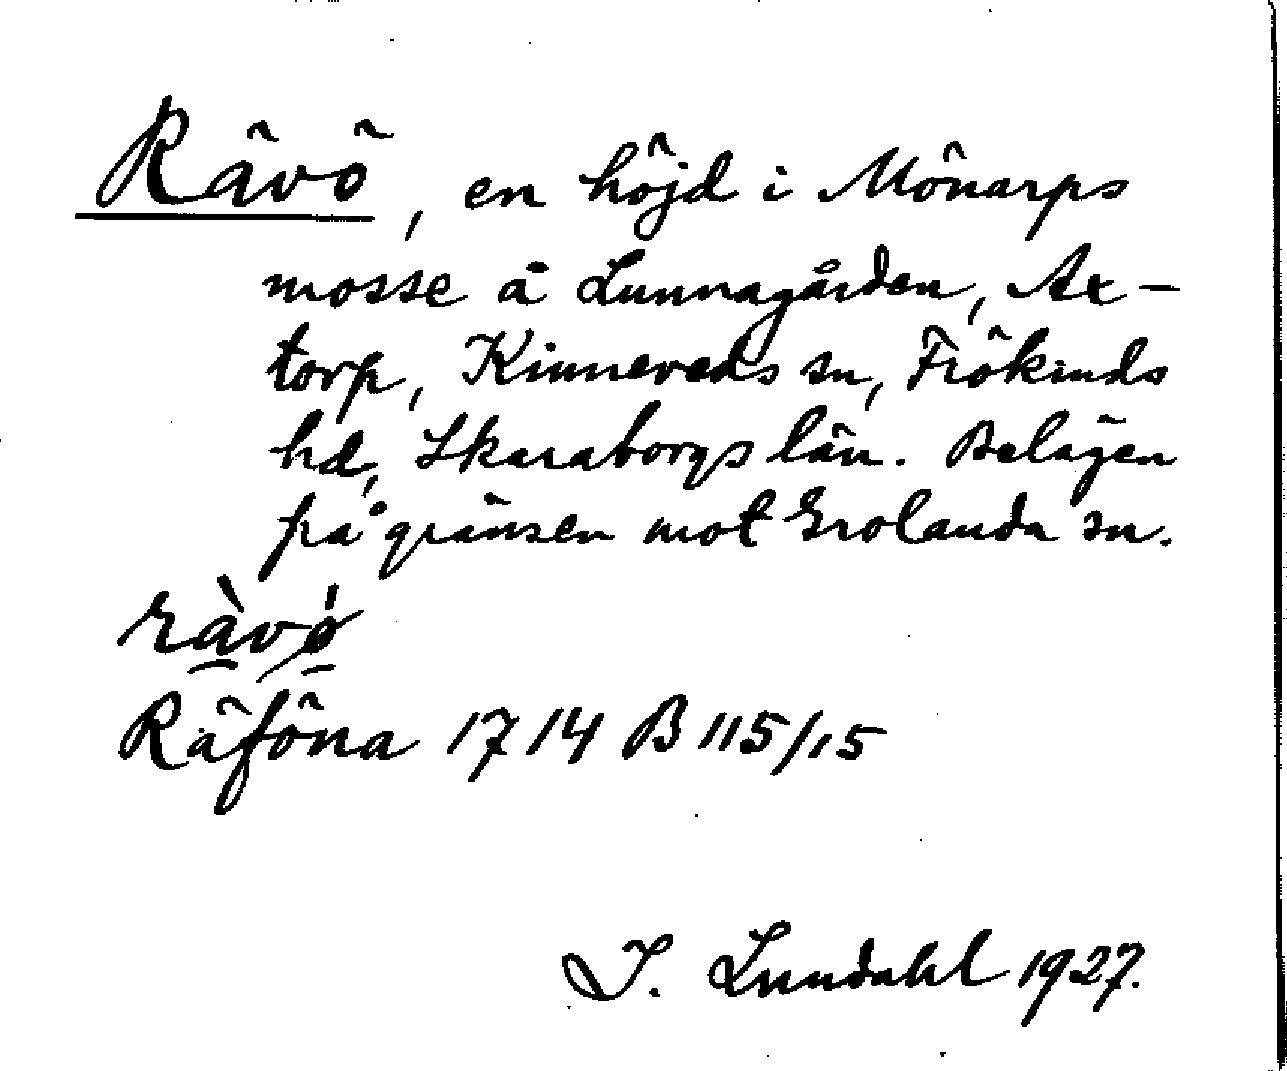 Rävö, en höjd i Mönarps
mosse å Lunnagården, Ax-
torp, Kinneveds sn, Frökinds
hd, Skaraborgs län. Belägen
på gränsen mot Grolanda sn.
rà̱vǿ̱
Räföna 1714 B 115/15
I. Lundahl 1927.